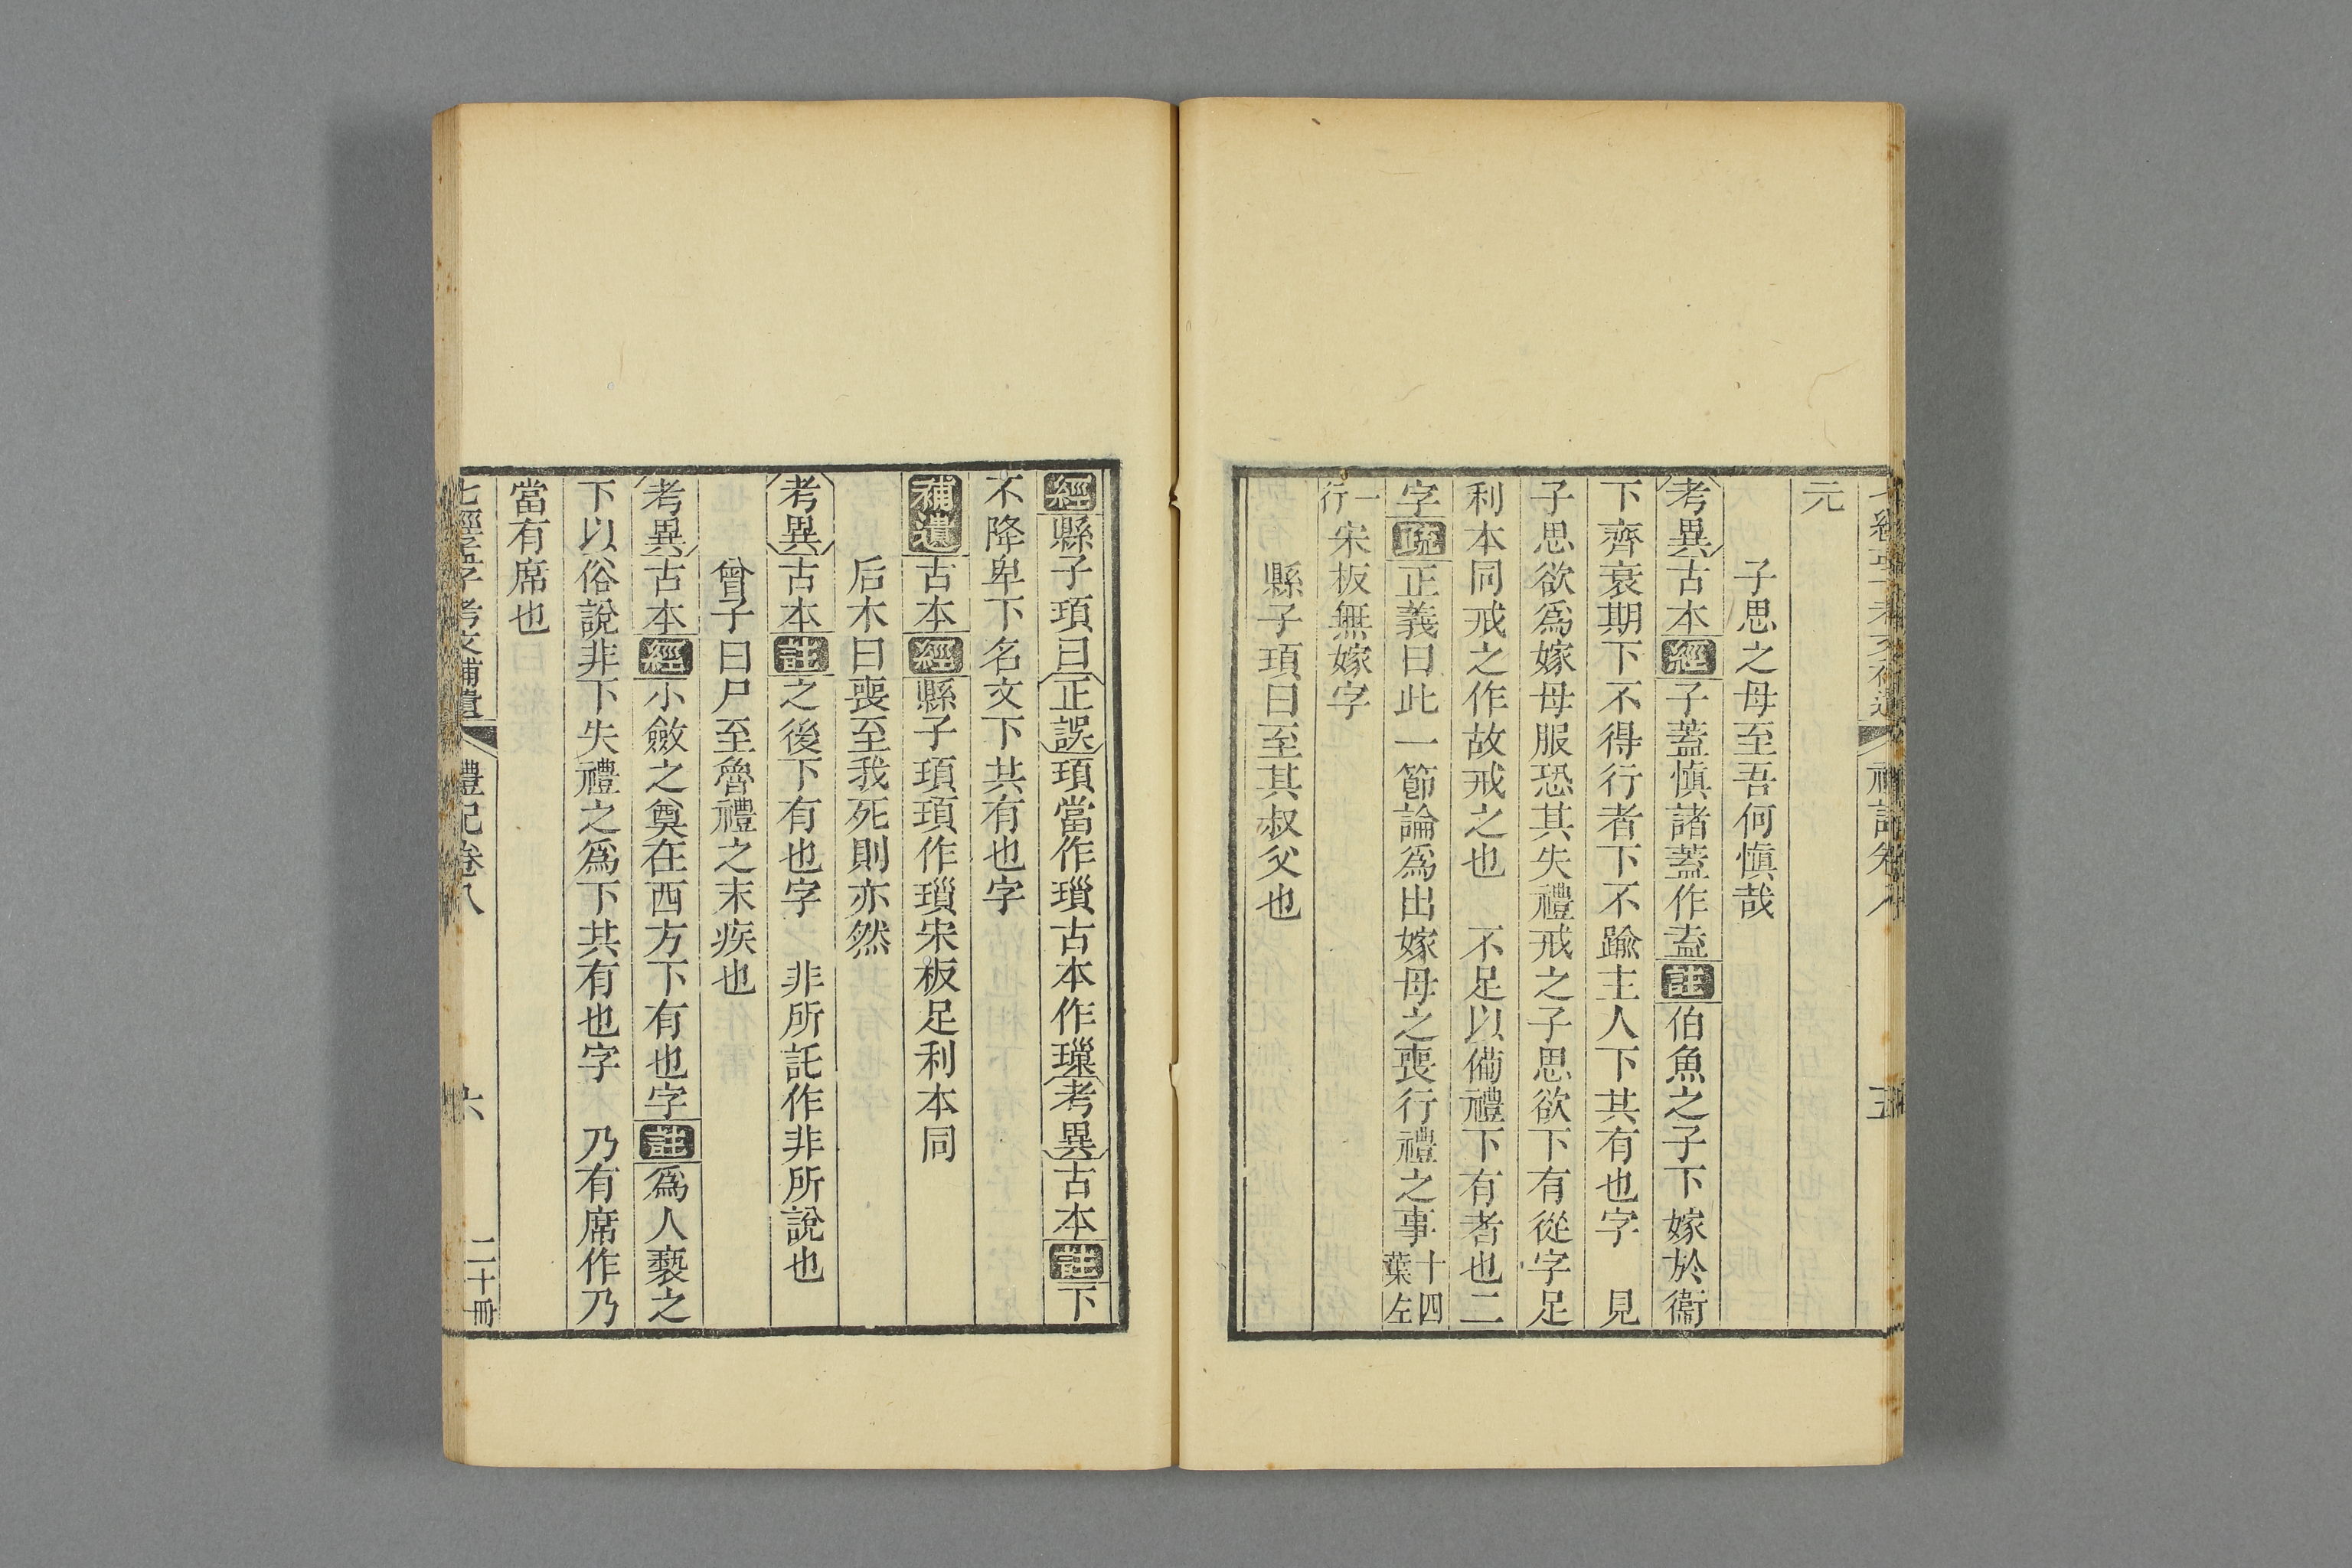 元
子思之母至吾何愼哉
考異古本經子蓋愼諸蓋作盍註伯魚之子下嫁於衞
下齊衰期下不得行者下不踰主人下共有也字　見
子思欲爲嫁母服恐其失禮戒之子思欲下有從字足
利本同戒之作故戒之也　不足以備禮下有者也二
字疏正義曰此一節論爲出嫁母之喪行禮之事十四葉左
一行宋板無嫁字
縣子瑣曰至其叔父也
經縣子瑣曰正誤瑣當作瑣古本作璅考異古本註下
不降卑下名文下共有也字
補遺古本經縣子瑣瑣作瑣宋板足利本同
后木曰喪至我死則亦然
考異古本註之後下有也字　非所託作非所說也
曾子曰尸至魯禮之末疾也
考異古本經小斂之奠在西方下有也字註爲人褻之
下以俗說非下失禮之爲下共有也字　乃有席作乃
當有席也
七經孟子考文補遺　禮記卷八　六　二十冊